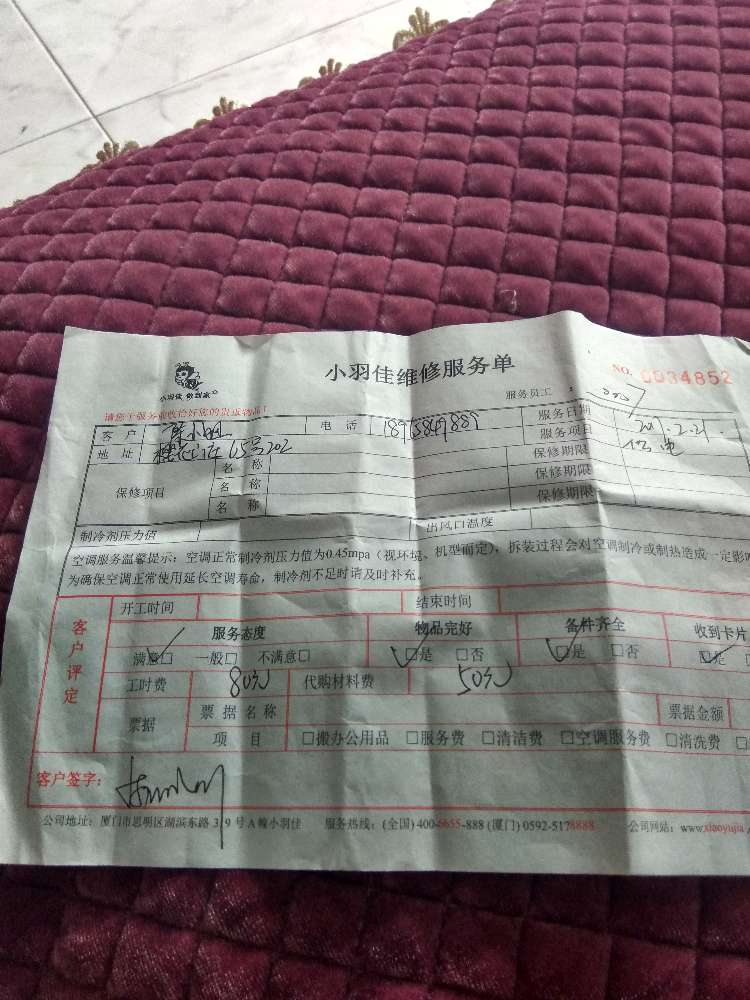 小羽佳维修服务单
NO. 0034852
小羽佳 做到家
服务员工：
请您于服务前收拾好您的贵重物品！
客户 电话 服务日期
地址 65号202 服务项目
保修项目 名称 保修期限
名称 保修期限
名称 保修期限
制冷剂压力值 出风口温度
空调服务温馨提示：空调正常制冷剂压力值为0.45mpa（视环境、机型而定），拆装过程会对空调制冷或制热造成一定影响
为确保空调正常使用延长空调寿命，制冷剂不足时请及时补充。
客户评定
开工时间 结束时间
服务态度 物品完好 备件齐全 收到卡片
满意□ 一般□ 不满意□ □是 □否 □是 □否 □是
工时费 80元 代购材料费 50元
票据 票据名称 票据金额
项目 □搬办公用品 □服务费 □清洁费 □空调服务费 □清洗费
客户签字：
公司地址：厦门市思明区湖滨东路319号A幢小羽佳 服务热线：(全国) 400-6655-888 (厦门) 0592-5178888 公司网站：www.xiaoyujia